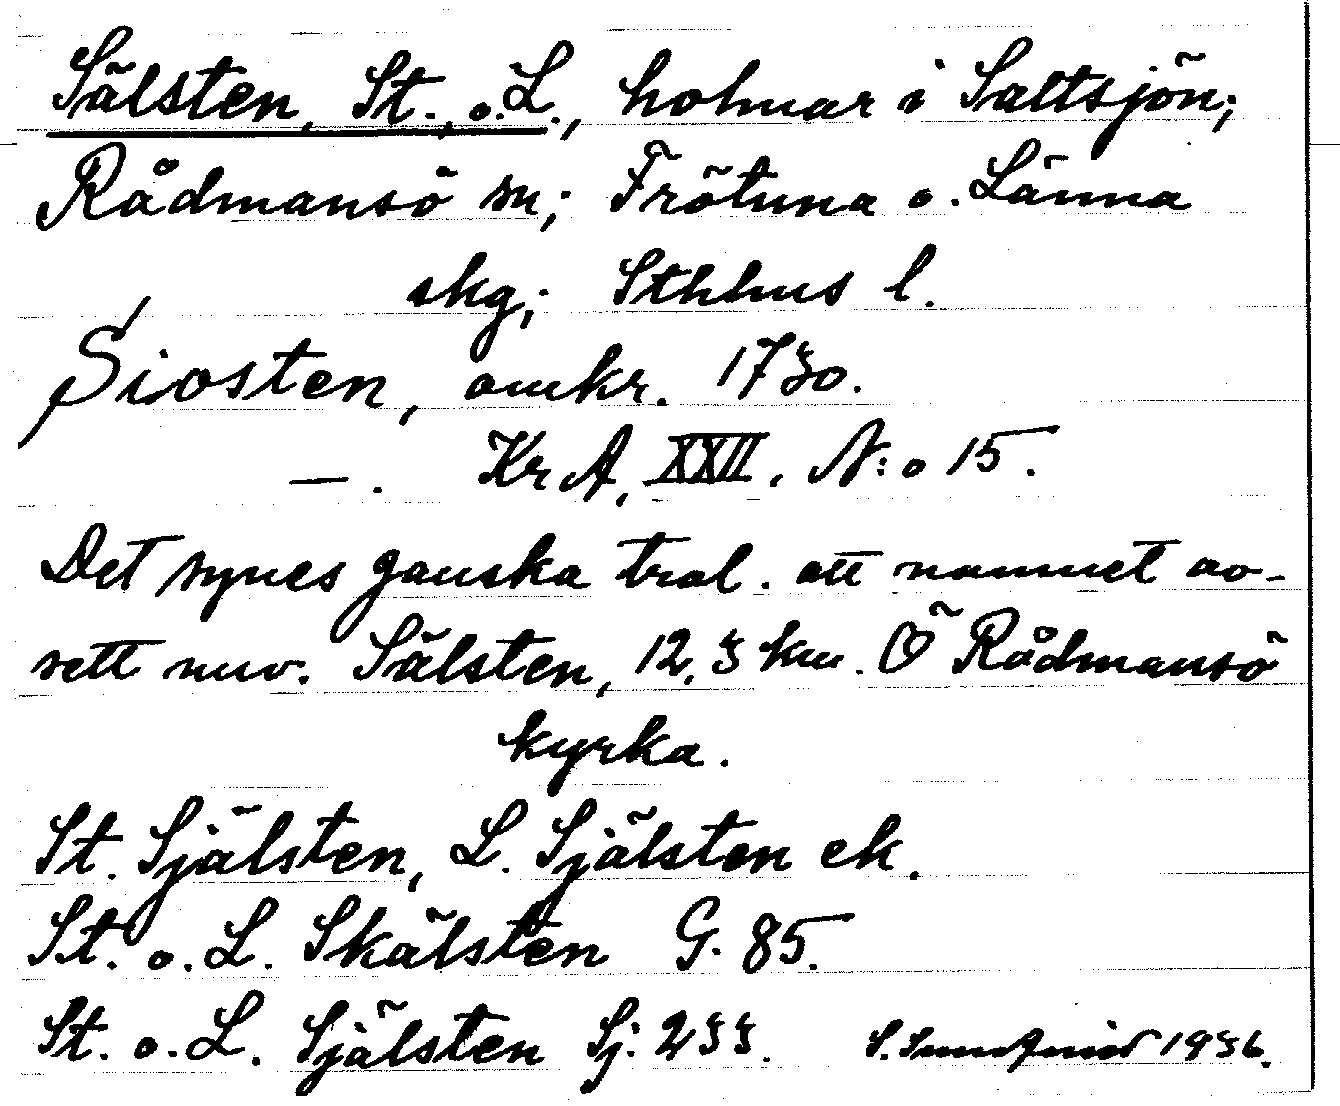 Sälsten, St., o. L., holmar i Saltsjön;
Rådmansö sn; Frötuna o. Länna
skg; Sthlms l.
Siosten, omkr. 1730.
—. KrA, XXII, N:o 15.
Det synes ganska trol. att namnet av-
sett nuv. Sälsten, 12,3 km. Ö Rådmansö
kyrka.
St. Själsten, L. Själsten ek.
St. o. L. Skälsten G. 85.
St. o. L. Själsten Sj. 233. S. 1936.